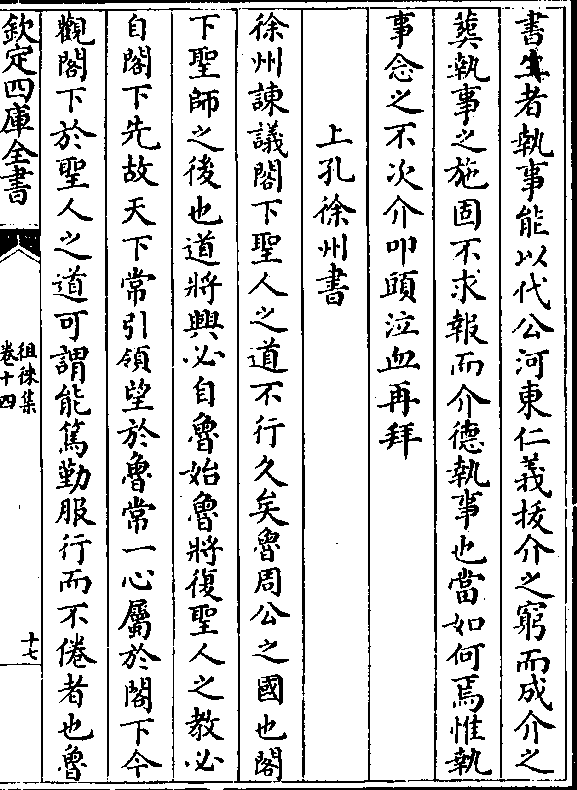 書生者執事能以代公河東仁義援介之窮而成介之
葬執事之施固不求報而介德執事也當如何焉惟執
事念之不次介叩頭泣血再拜
上孔徐州書
徐州諫議閣下聖人之道不行久矣魯周公之國也閣
下聖師之後也道將興必自魯始魯將復聖人之教必
自閣下先故天下常引領望於魯常一心屬於閣下今
觀閣下於聖人之道可謂能篤勤服行而不倦者也魯
欽定四庫全書
徂徠集
卷十四
十七